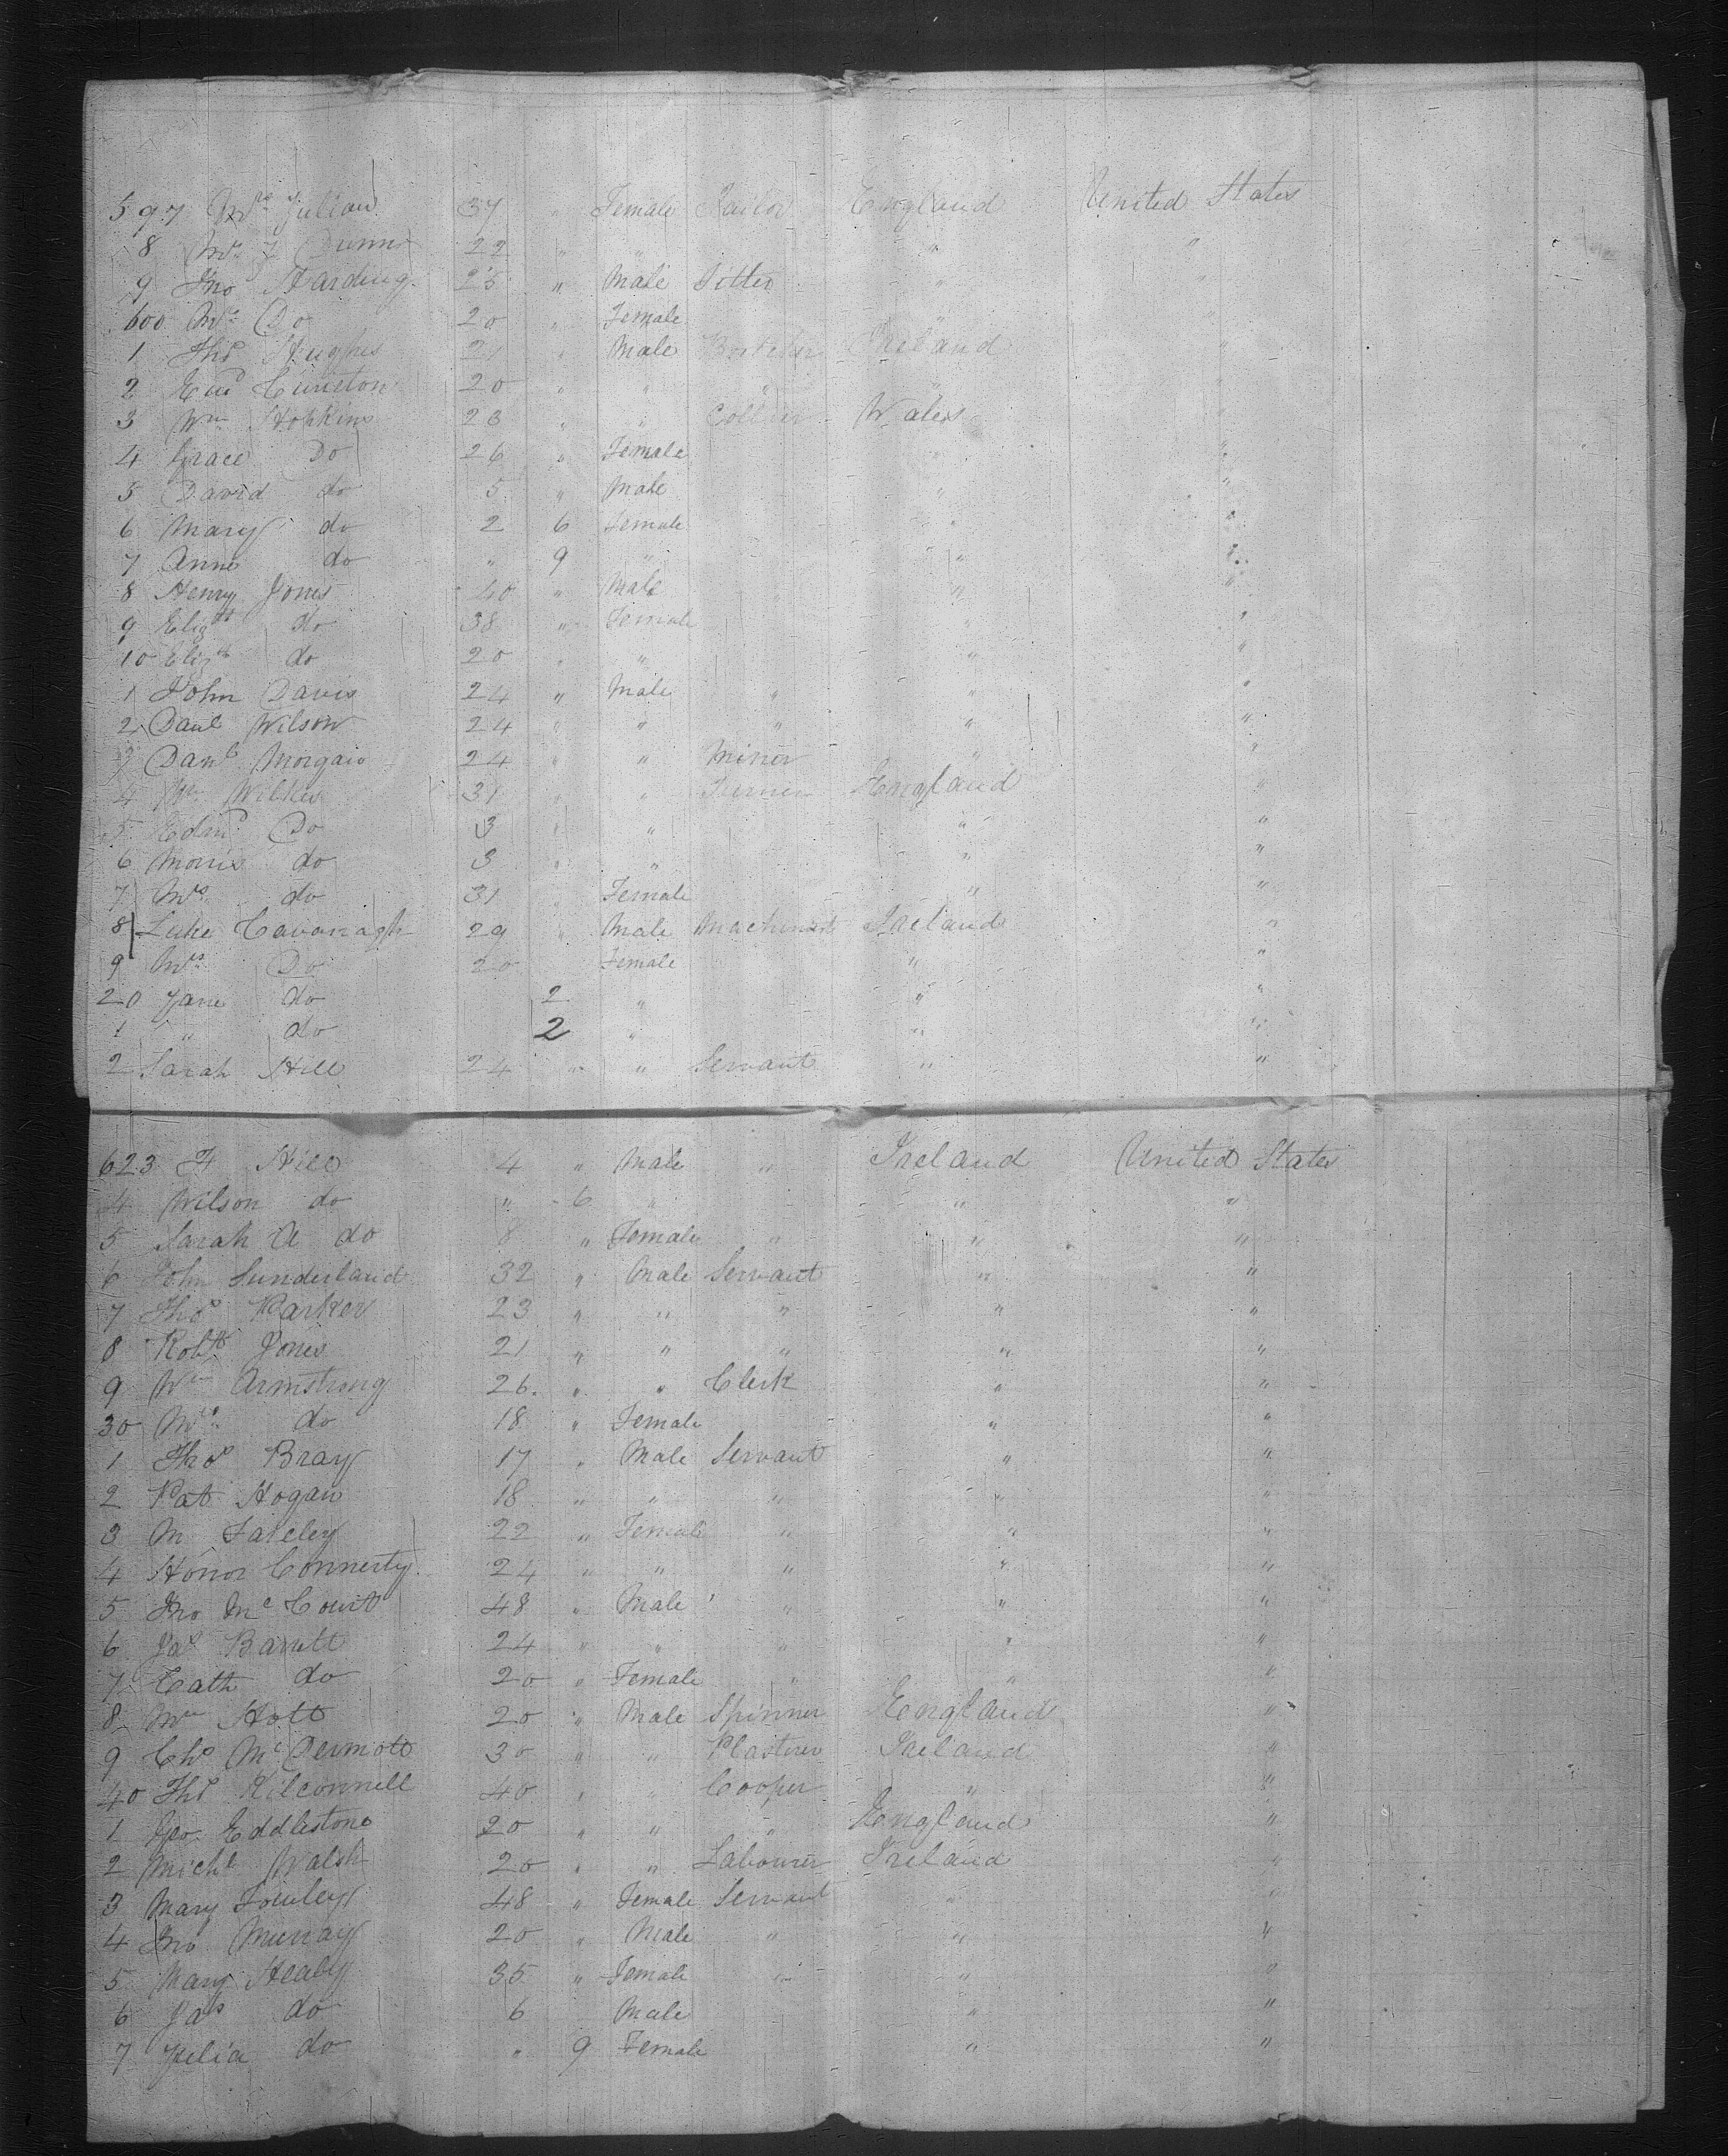 597 Mrs Julian 37 " Female Tailor England United States
8 Mrs J Dunn 22 " " " "
9 Jno Harding 25 " Male Settler " "
600 Mrs Do 20 " Female " "
1 Thos Hughes 21 " Male Ireland "
2 Edd Cureton 20 " " " " "
3 Wm Hopkins 28 " " Collier Wales "
4 Grace Do 26 " Female " "
5 David do 5 " Male " "
6 Mary do 2 6 Female " "
7 Anne do " 9 " " "
8 Henry Jones 40 " Male " "
9 Elizth do 38 " Female " "
10 Elizth do 20 " " " "
1 John Davis 24 " Male " " "
2 Danl Wilson 24 " " " " "
3 Danl Morgain 24 " " Miner " "
4 Wm Wilkes 31 " " England "
5 Edmd Do 3 " " " "
6 Morris do 3 " " " "
7 Mrs do 31 " Female " "
8 Luke Cavanagh 29 " Male Machinist Ireland "
9 Mrs Do 20 Female " "
20 Jane do 2 " " "
1 " do 2 " " "
2 Sarah Hill 24 " " Servant " "
623 H Hill 4 " Male " Ireland United States
4 Wilson do " 6 " " "
5 Sarah A do 8 " Female " " "
6 John Sunderland 32 " Male Servant " "
7 Thos Parker 23 " " " " "
8 Robt Jones 21 " " " " "
9 Wm Armstrong 26 " " Clerk " "
30 Mrs do 18 " Female " "
1 Thos Bray 17 " Male Servant " "
2 Pat Hogan 18 " " " " "
3 M 22 " Female " " "
4 Honor Connerty 24 " " " " "
5 Jno Mc Court 48 " Male " " "
6 Jas Barrett 24 " " " " "
7 Cath do 20 " Female " " "
8 Wm Holt 20 " Male Spinner England "
9 Chs Mc Dermott 30 " " Plasterer Ireland "
40 Thos Kilconnell 40 " " Cooper " "
1 Jno Eddlestone 20 " " " England "
2 Michl Walsh 20 " " Labourer Ireland "
3 Mary Fowley 48 " Female Servant " "
4 Jno Murray 20 " Male " " "
5 Mary Healy 35 " Female " " "
6 Jas do 6 Male " "
7 Julia do " 9 Female " "